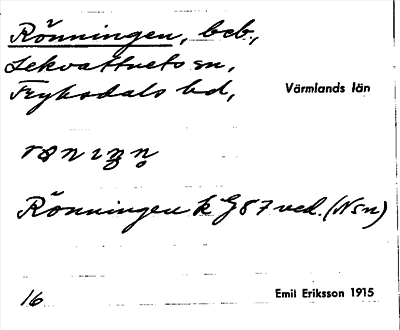 Rönningen, beb.,
Lekvattnets sn,
Fryksdals hd,
Värmlands län
Rönningen k G87 ved. (Nsn)
16
Emil Eriksson 1915